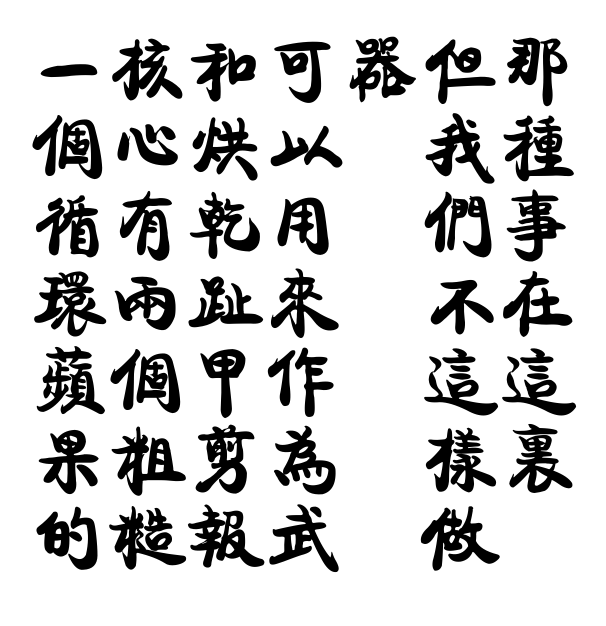 一個循環蘋果的
核心有兩個粗糙
和烘乾趾甲剪報
可以用來作為武
器
但我們不這樣做
那種事在這裏